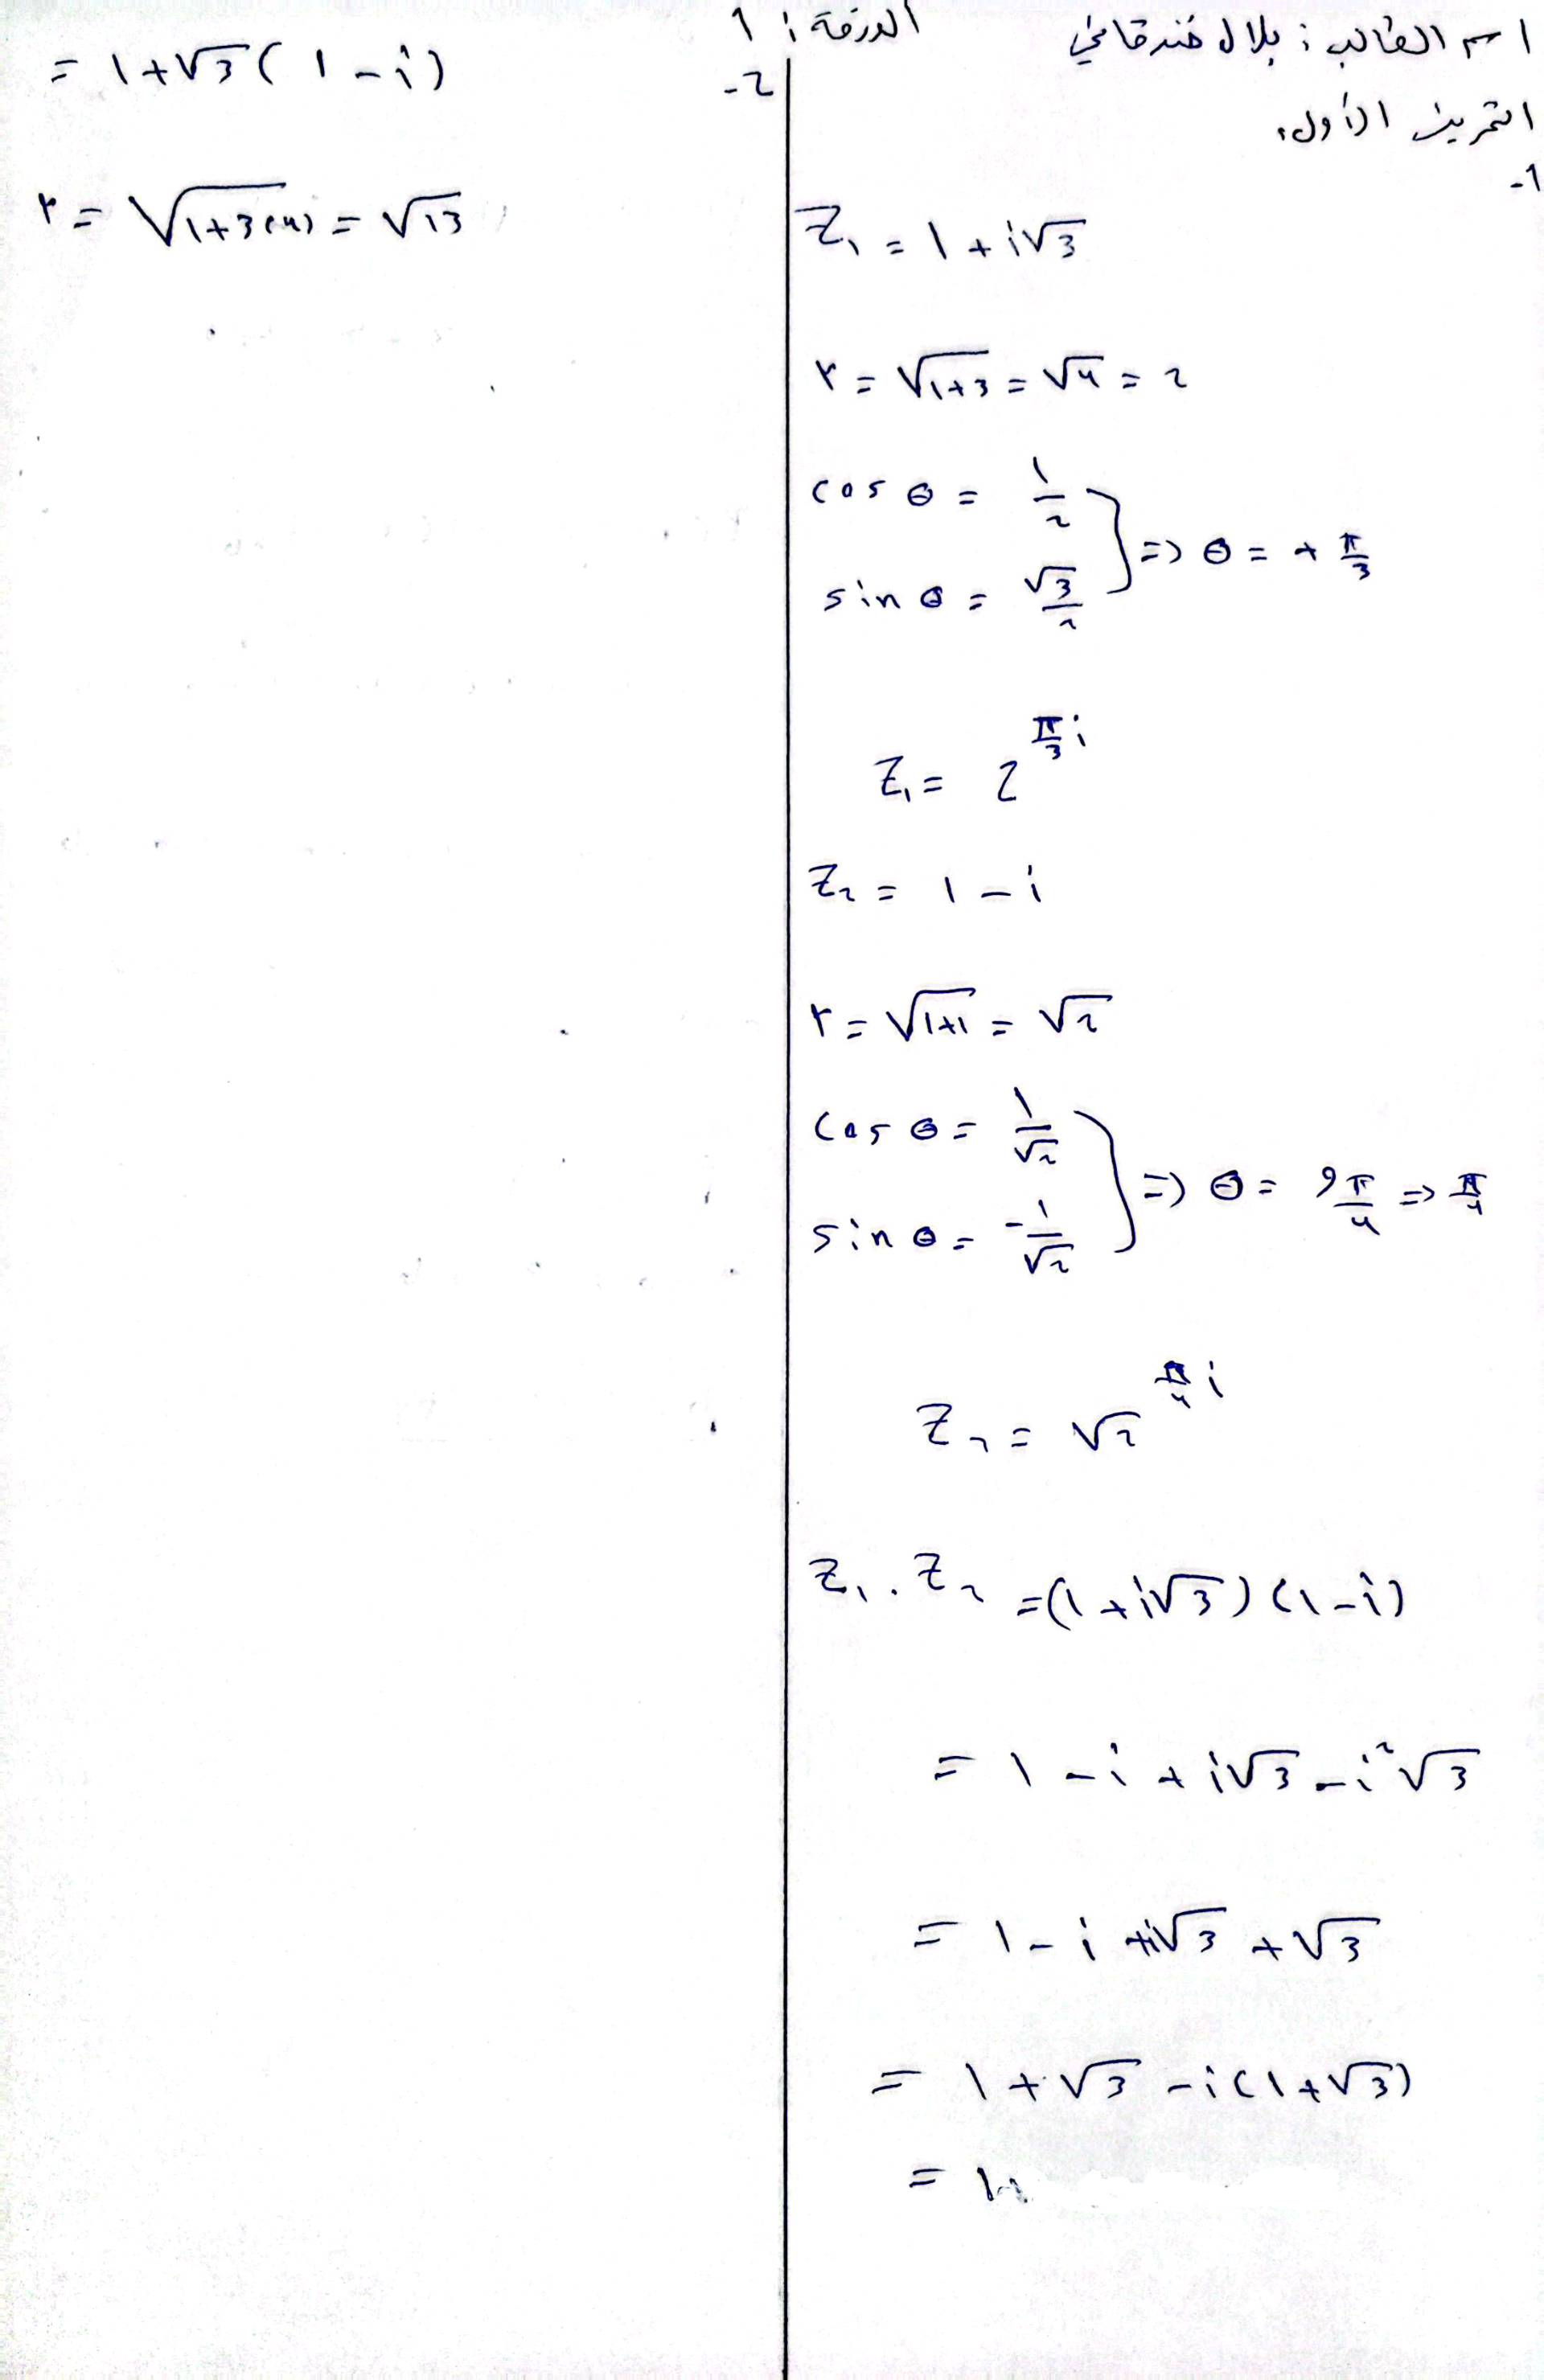 اسم الطالب : بلال خندقاني
الورقة : 1
التمرين الأول:
-1
Z₁ = 1 + i√3
r = √(1+3) = √4 = 2
cos θ = 1/2
sin θ = √3/2 } => θ = + π/3
Z₁ = 2^(π/3 i)
Z₂ = 1 - i
r = √(1+1) = √2
cos θ = 1/√2
sin θ = -1/√2 } => θ = 9π/4 => π/4
Z₂ = √2^(π/4 i)
Z₁ . Z₂ = (1 + i√3) (1 - i)
= 1 - i + i√3 - i²√3
= 1 - i + i√3 + √3
= 1 + √3 - i(1 + √3)
=
-2
= 1 + √3 ( 1 - i )
r = √(1+3(4)) = √13